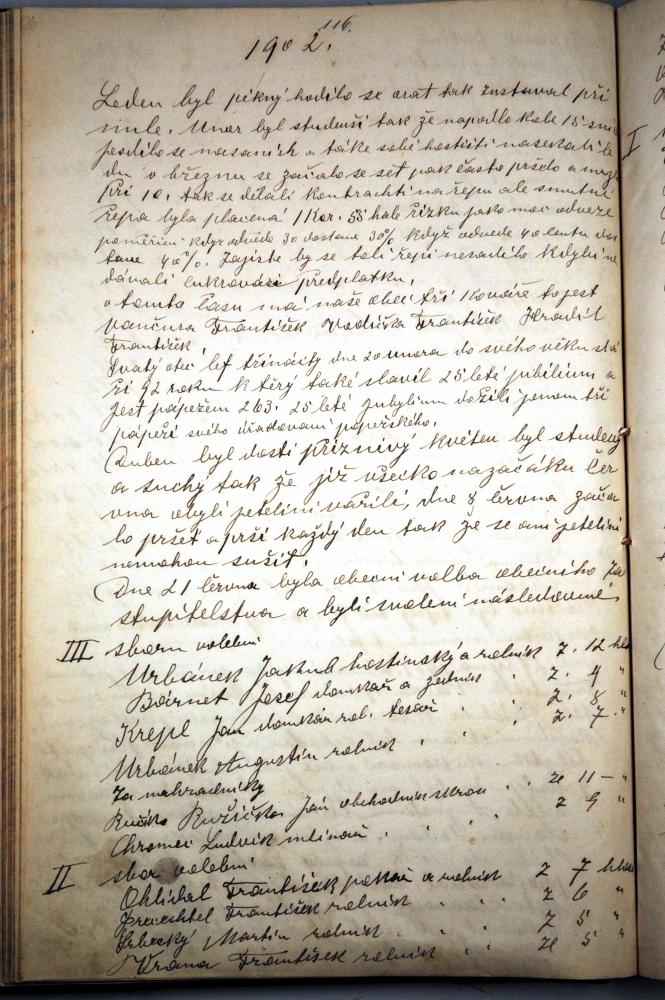 116.
1902.
Leden byl pěkný hodilo se orat tak zustaval při
mile. Unor byl studenší tak že napadlo kole 15
jesdilo se na saních a také sobě hostiští nasekali le
du v březnu se začalo se set pak často pršelo a
Při 10. tak se dělali kontrachti na řepu ale smutní
řepa byla placená 1 Kor. 55 hale řízku jako moc odveze
poměřím: když odvede 30 dostane 30% když odvede 40 centu dos
tane 40%. Zajiste by se tolí řepi nesadilo kdyby ne
dávali cukrováři předplatku.
o tomto času má naše obec tři Kováře to jest
Vančura František Vodička František Hradil
František
Svatý otec lef třináctý dne 20 unora do svého věku sta
ří 92 roku k terý také slavil 25 leté jubilium a
jest papežem 263. 25 leté jubylium dožili jenom tři
papeži svého úřadovaní papežského.
Duben byl dosti příznivý květen byl studený
a suchý tak že již všecko na začátku Čer
vna obyli jetelini vařili, dne 8 června zača
lo pršet a prší každý den tak že se ani jetelini
nemohou sušit.
Dne 21 června byla obecní volba obecního Za
stupitelstva a byli zvoleni následovně.
III sboru volební
Urbánek Jakub hostinský a rolník z. 12 hla
Bárnet Josef domkař a zedník . z. 9 "
Krepl Jan domkár rol. tesař . z. 8 "
Urbánek Augustin rolník . . z. 7 "
Za nahradníky
Ružička Jan obchodník . . ze 11 – "
Chromec Ludvík mlinář . . . z 9 "
II sbor volební
Ohlídal František pekař a rolník z 7 hlas
František rolník . . . z 6 "
Srbecký Martin rolník . . . z 5 "
Vrana František rolník . . ze 5 "